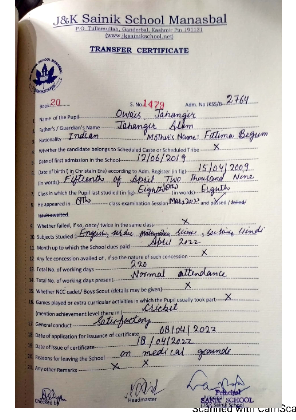 J&K Sainik School Manasbal
P.O. Tullamulla, Ganderbal, Kashmir Pin 191131
TRANSFER CERTIFICATE
Book 20 S. No. 1479 Adm. No. 2764
Name of the Pupil Owais Jahangir
Father's / Guardian's Name Jahangir Alam
Nationality Indian Mother's Name: Fatima Begum
Whether the candidate belongs to Scheduled Caste or Scheduled Tribe X
Date of first admission in the School 12/06/2019
Date of birth (in Christian Era) according to Adm. Register (in fig) 15/04/2009
(in words) Fifteenth of April Two Thousand Nine
Class in which the Pupil last studied (in fig) Eighth (in words) Eighth
class examination Session
Whether failed, if so, once/twice in the same class X
Subjects Studied English, Urdu, Hindi
Month up to which the School dues paid April 2022
Any fee concession availed of, if so the nature of such concession X
Total No. of working days 220
Total No. of working days present Normal attendance
Whether NCC cadet/ Boys Scout (details may be given) X
Games played or extra curricular activities in which the Pupil usually took part X
(mention achievement level therein) Cricket
General conduct Satisfactory
Date of application for issuance of certificate 08/04/2022
Date of issue of certificate 18/04/2022
Reasons for leaving the School on medical grounds
Any other Remarks X X
Headmaster
Principal
SAINIK SCHOOL
Scanned with CamSca